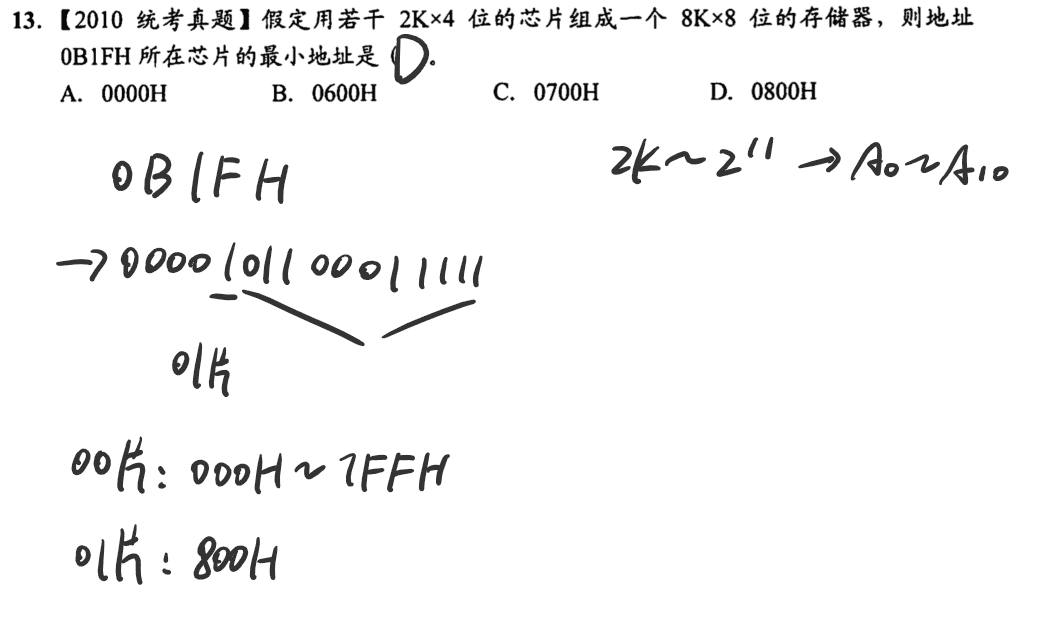 13.【2010 统考真题】假定用若干 2K×4 位的芯片组成一个 8K×8 位的存储器，则地址
0B1FH 所在芯片的最小地址是（D）。
A. 0000H B. 0600H C. 0700H D. 0800H
0B1FH
2K~2¹¹ → A₀~A₁₀
→0000101100011111
01片
00片：000H~7FFH
01片：800H